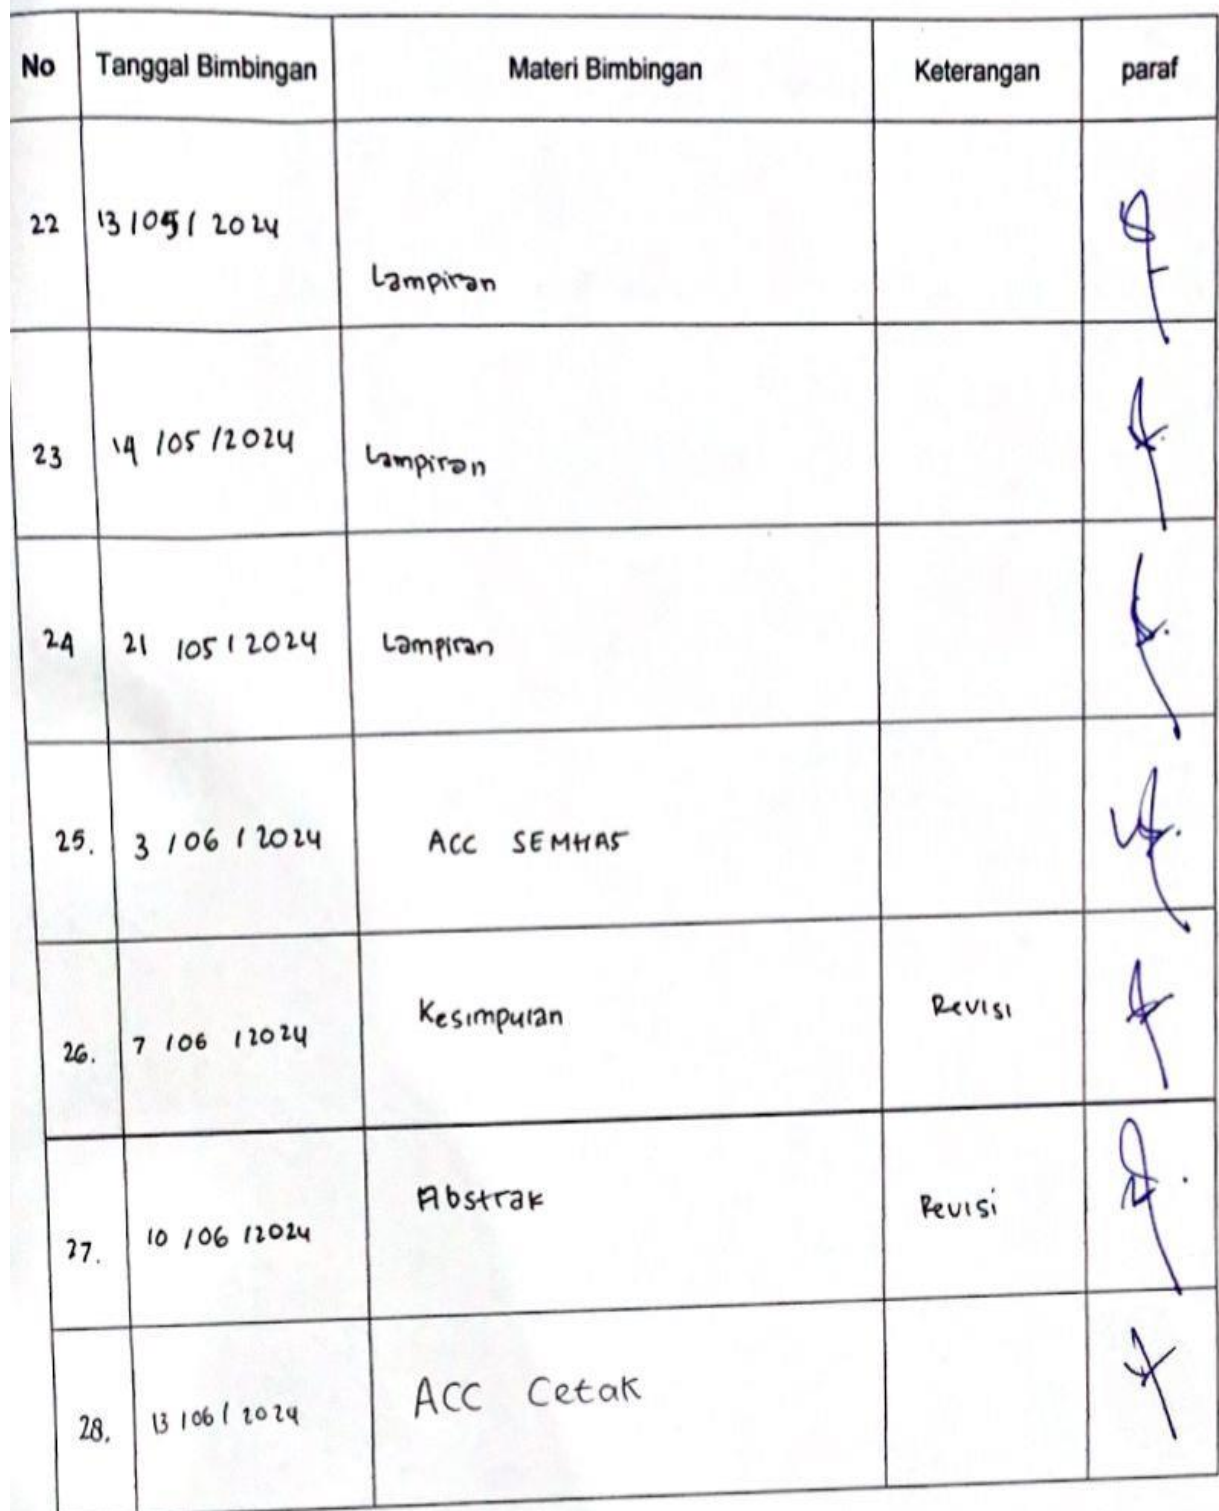 No Tanggal Bimbingan Materi Bimbingan Keterangan paraf
22 13/05/2024 Lampiran
23 14/05/2024 Lampiran
24 21/05/2024 Lampiran
25. 3/06/2024 ACC SEMHAS
26. 7/06/2024 Kesimpulan Revisi
27. 10/06/2024 Abstrak Revisi
28. 13/06/2024 ACC Cetak